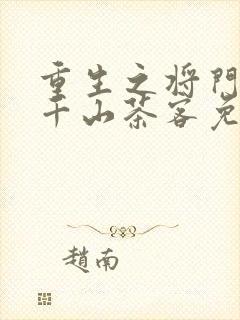 重生之将门
千山茶客免
趙南